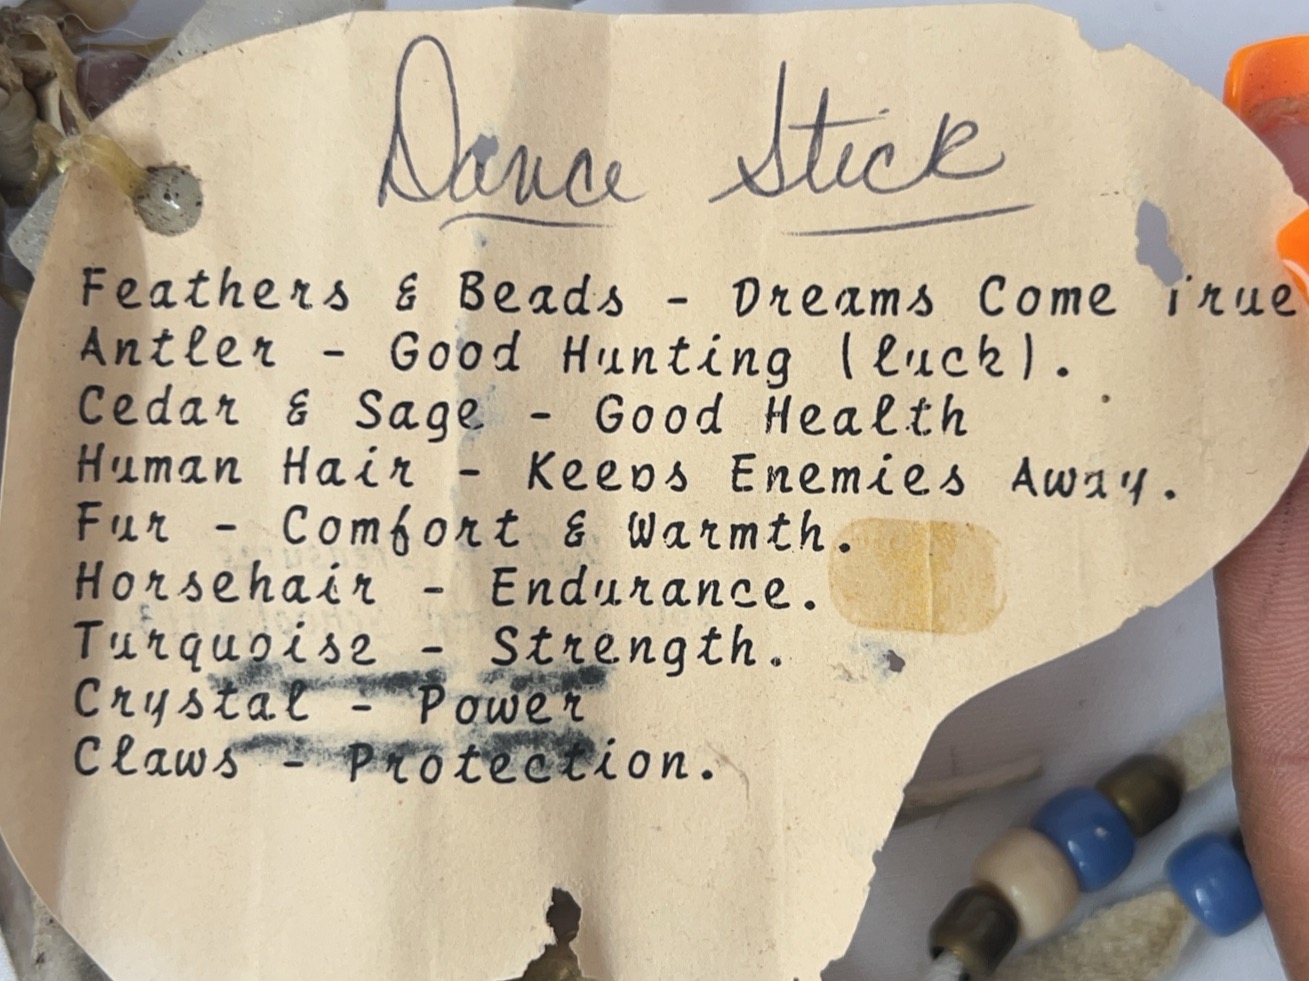 Dance Stick
Feathers & Beads - Dreams Come True
Antler - Good Hunting (luck).
Cedar & Sage - Good Health
Human Hair - Keeps Enemies Away.
Fur - Comfort & Warmth.
Horsehair - Endurance.
Turquoise - Strength.
Crystal - Power
Claws - Protection.